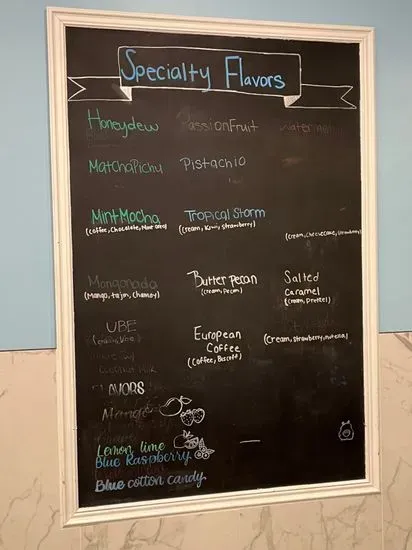 Specialty Flavors
Honeydew PassionFruit Watermelon
MatchaPichu Pistachio
MintMocha Tropical Storm
(Coffee, Chocolate, (cream, Kiwi, Strawberry)
(cream, Cheesecake, Strawberry)
Mangonada Butter Pecan Salted
(Mango, tajin, Chamoy) (cream, Pecan) Caramel
(cream, Pretzel)
UBE European
Coffee (Cream, Strawberry,
(Coffee, Biscoff)
FLAVORS
Mango
Lemon lime
Blue Raspberry
Blue cotton candy